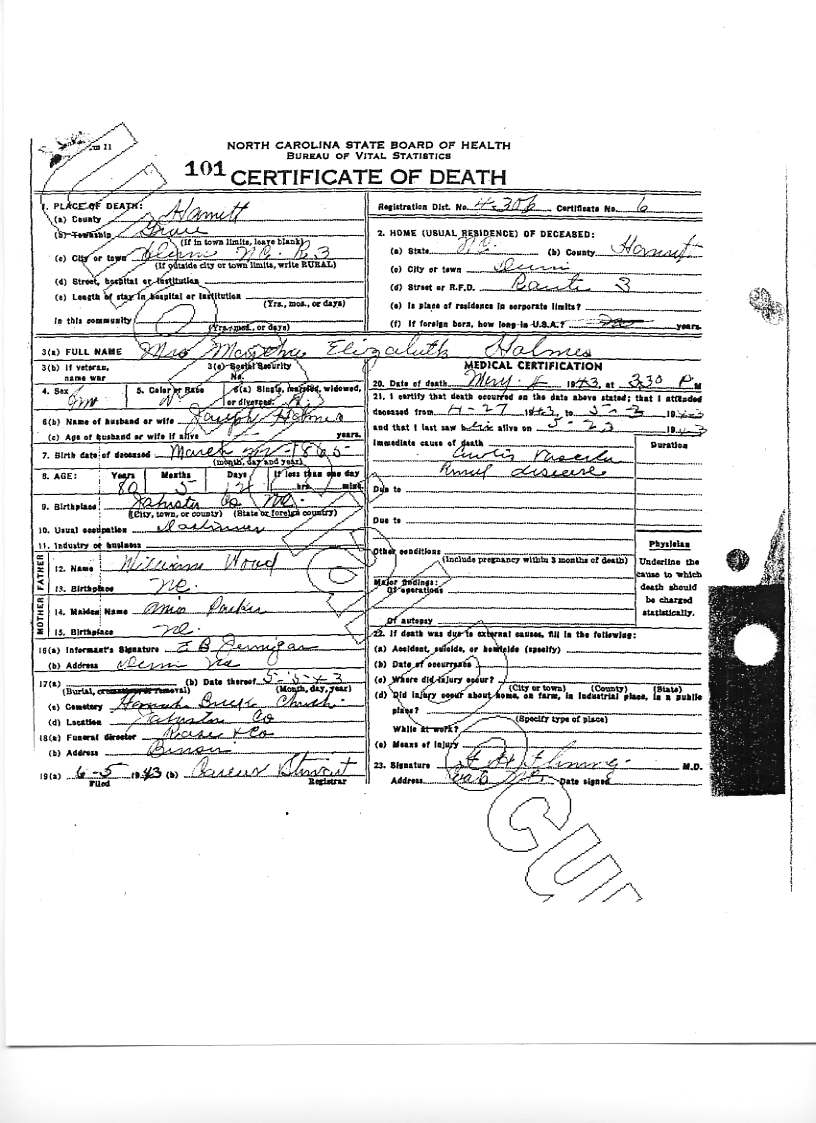 NORTH CAROLINA STATE BOARD OF HEALTH
BUREAU OF VITAL STATISTICS
101 CERTIFICATE OF DEATH
1. PLACE OF DEATH:
(a) County Harnett
(b) Township Grove
(If in town limits, leave blank)
(c) City or town Dunn N.C. R.3
(If outside city or town limits, write RURAL)
(d) Street, hospital or institution
(e) Length of stay in hospital or institution
(Yrs., mos., or days)
In this community
(Yrs., mos., or days)
Registration Dist. No. 4-306 Certificate No. 6
2. HOME (USUAL RESIDENCE) OF DECEASED:
(a) State N.C. (b) County Harnett
(c) City or town Dunn
(d) Street or R.F.D. Route 3
(e) Is place of residence in corporate limits?
(f) If foreign born, how long in U.S.A.? years.
3(a) FULL NAME Mrs Martha Elizabeth Holmes
3(b) If veteran, name war
3(c) Social Security No.
4. Sex
5. Color or Race W
6(a) Single, married, widowed, or divorced
6(b) Name of husband or wife Joseph Holmes
(c) Age of husband or wife if alive years.
7. Birth date of deceased March 1865
(month, day and year)
8. AGE: Years Months Days If less than one day
80 5 hrs. min.
9. Birthplace Johnston Co NC.
(City, town, or county) (State or foreign country)
10. Usual occupation
11. Industry or business
FATHER
12. Name William Wood
13. Birthplace NC.
MOTHER
14. Maiden Name Parker
15. Birthplace NC.
16(a) Informant's Signature E B Jernigan
(b) Address Dunn NC
17(a) (b) Date thereof 5-5-43
(Burial, cremation or removal) (Month, day, year)
(c) Cemetery Hannah Creek Church
(d) Location Johnston Co
18(a) Funeral director & Co
(b) Address Benson
19(a) 6-5 1943 (b) Stewart
Filed Registrar
MEDICAL CERTIFICATION
20. Date of death 1943, at 3:30 P M
21. I certify that death occurred on the date above stated; that I attended
deceased from 4-27 1943, to 5-3 1943
and that I last saw alive on 5-23 1943
Immediate cause of death
disease
Duration
Due to
Due to
Other conditions
(Include pregnancy within 3 months of death)
Major findings:
Of operations
Of autopsy
Physician
Underline the
cause to which
death should
be charged
statistically.
22. If death was due to external causes, fill in the following:
(a) Accident, suicide, or homicide (specify)
(b) Date of occurrence
(c) Where did injury occur?
(City or town) (County) (State)
(d) Did injury occur about home, on farm, in industrial place, in a public
place?
(Specify type of place)
While at work?
(e) Means of injury
23. Signature M.D.
Address Date signed